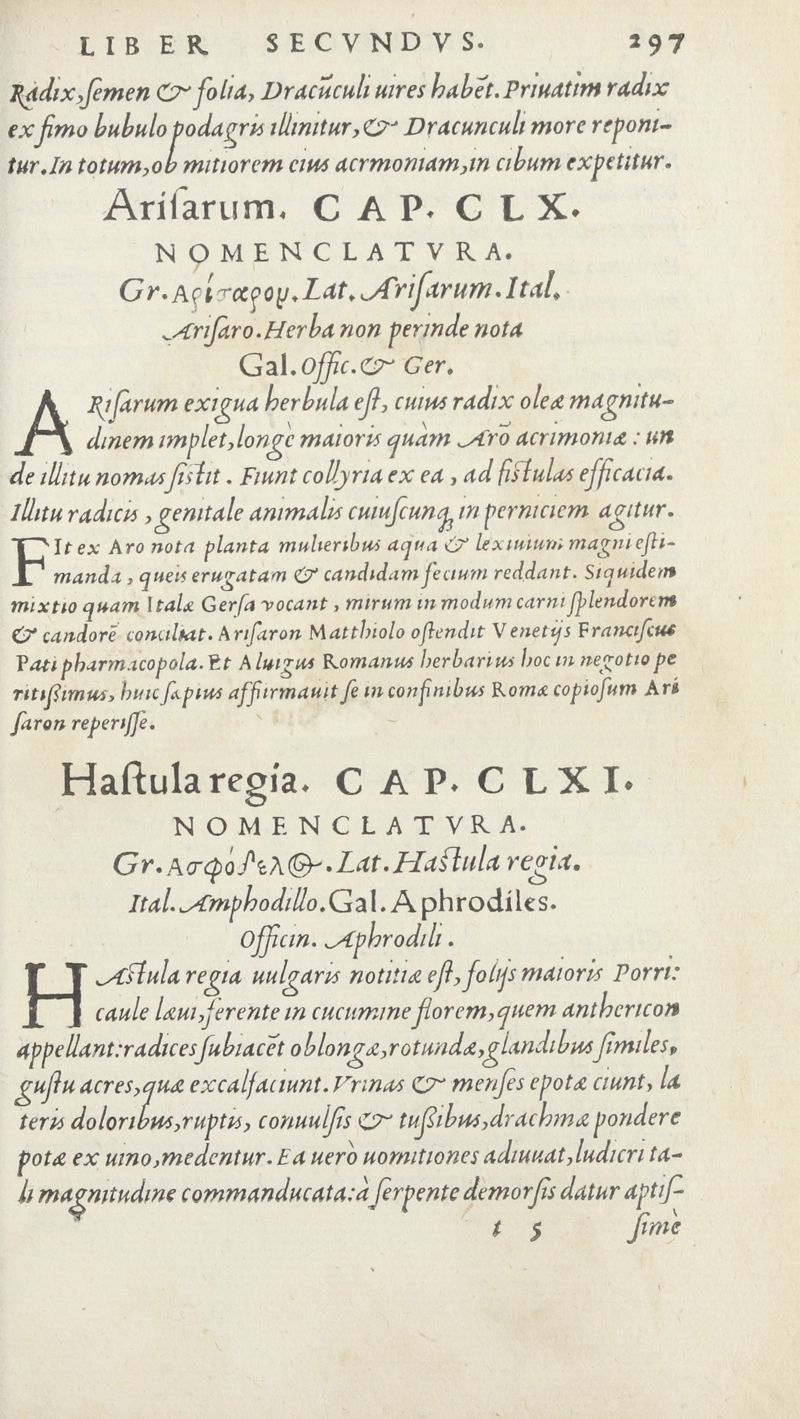 LIBER SECVNDVS. 297
Radix, ſemen & folia, Dracũculi uires habēt. Priuatim radix
ex fimo bubulo podagris illinitur, & Dracunculi more reponi-
tur. In totum, ob mitiorem eius acrimoniam, in cibum expetitur.
Ariſarum. CAP. CLX.
NOMENCLATVRA.
Gr. Αρίσαρον. Lat. Ariſarum. Ital.
Ariſaro. Herba non perinde nota
Gal. Offic. & Ger.
ARiſarum exigua herbula eſt, cuius radix oleæ magnitu-
dinem implet, longè maioris quàm Aro acrimoniæ : un
de illitu nomas ſiſtit. Fiunt collyria ex ea, ad fiſtulas efficacia.
Illitu radicis, genitale animalis cuiuſcunq; in perniciem agitur.
FIt ex Aro nota planta mulieribus aqua & lexiuium magni eſti-
manda, queis erugatam & candidam feciem reddant. Siquidem
mixtio quam Italæ Gerſa vocant, mirum in modum carni ſplendorem
& candorē conciliat. Ariſaron Matthiolo oſtendit Venetijs Franciſcus
Pati pharmacopola. Et Aluigus Romanus herbarius hoc in negotio pe
ritiſsimus, huic ſæpius affirmauit ſe in confinibus Romæ copioſum Ari
ſaron reperiſſe.
Haſtula regia. CAP. CLXI.
NOMENCLATVRA.
Gr. Ασφόδελος. Lat. Haſtula regia.
Ital. Amphodillo. Gal. Aphrodiles.
Officin. Aphrodili.
HAſtula regia uulgaris notitiæ eſt, folijs maioris Porri:
caule læui, ferente in cucumine florem, quem anthericon
appellant: radices ſubiacēt oblongæ, rotundæ, glandibus ſimiles,
guſtu acres, quæ excalfaciunt. Vrinas & menſes epotæ ciunt, la
teris doloribus, ruptis, conuulſis & tuſsibus, drachmæ pondere
potæ ex uino, medentur. Ea uerò uomitiones adiuuat, ludicri ta-
li magnitudine commanducata: à ſerpente demorſis datur aptiſ-
t 5 ſimè